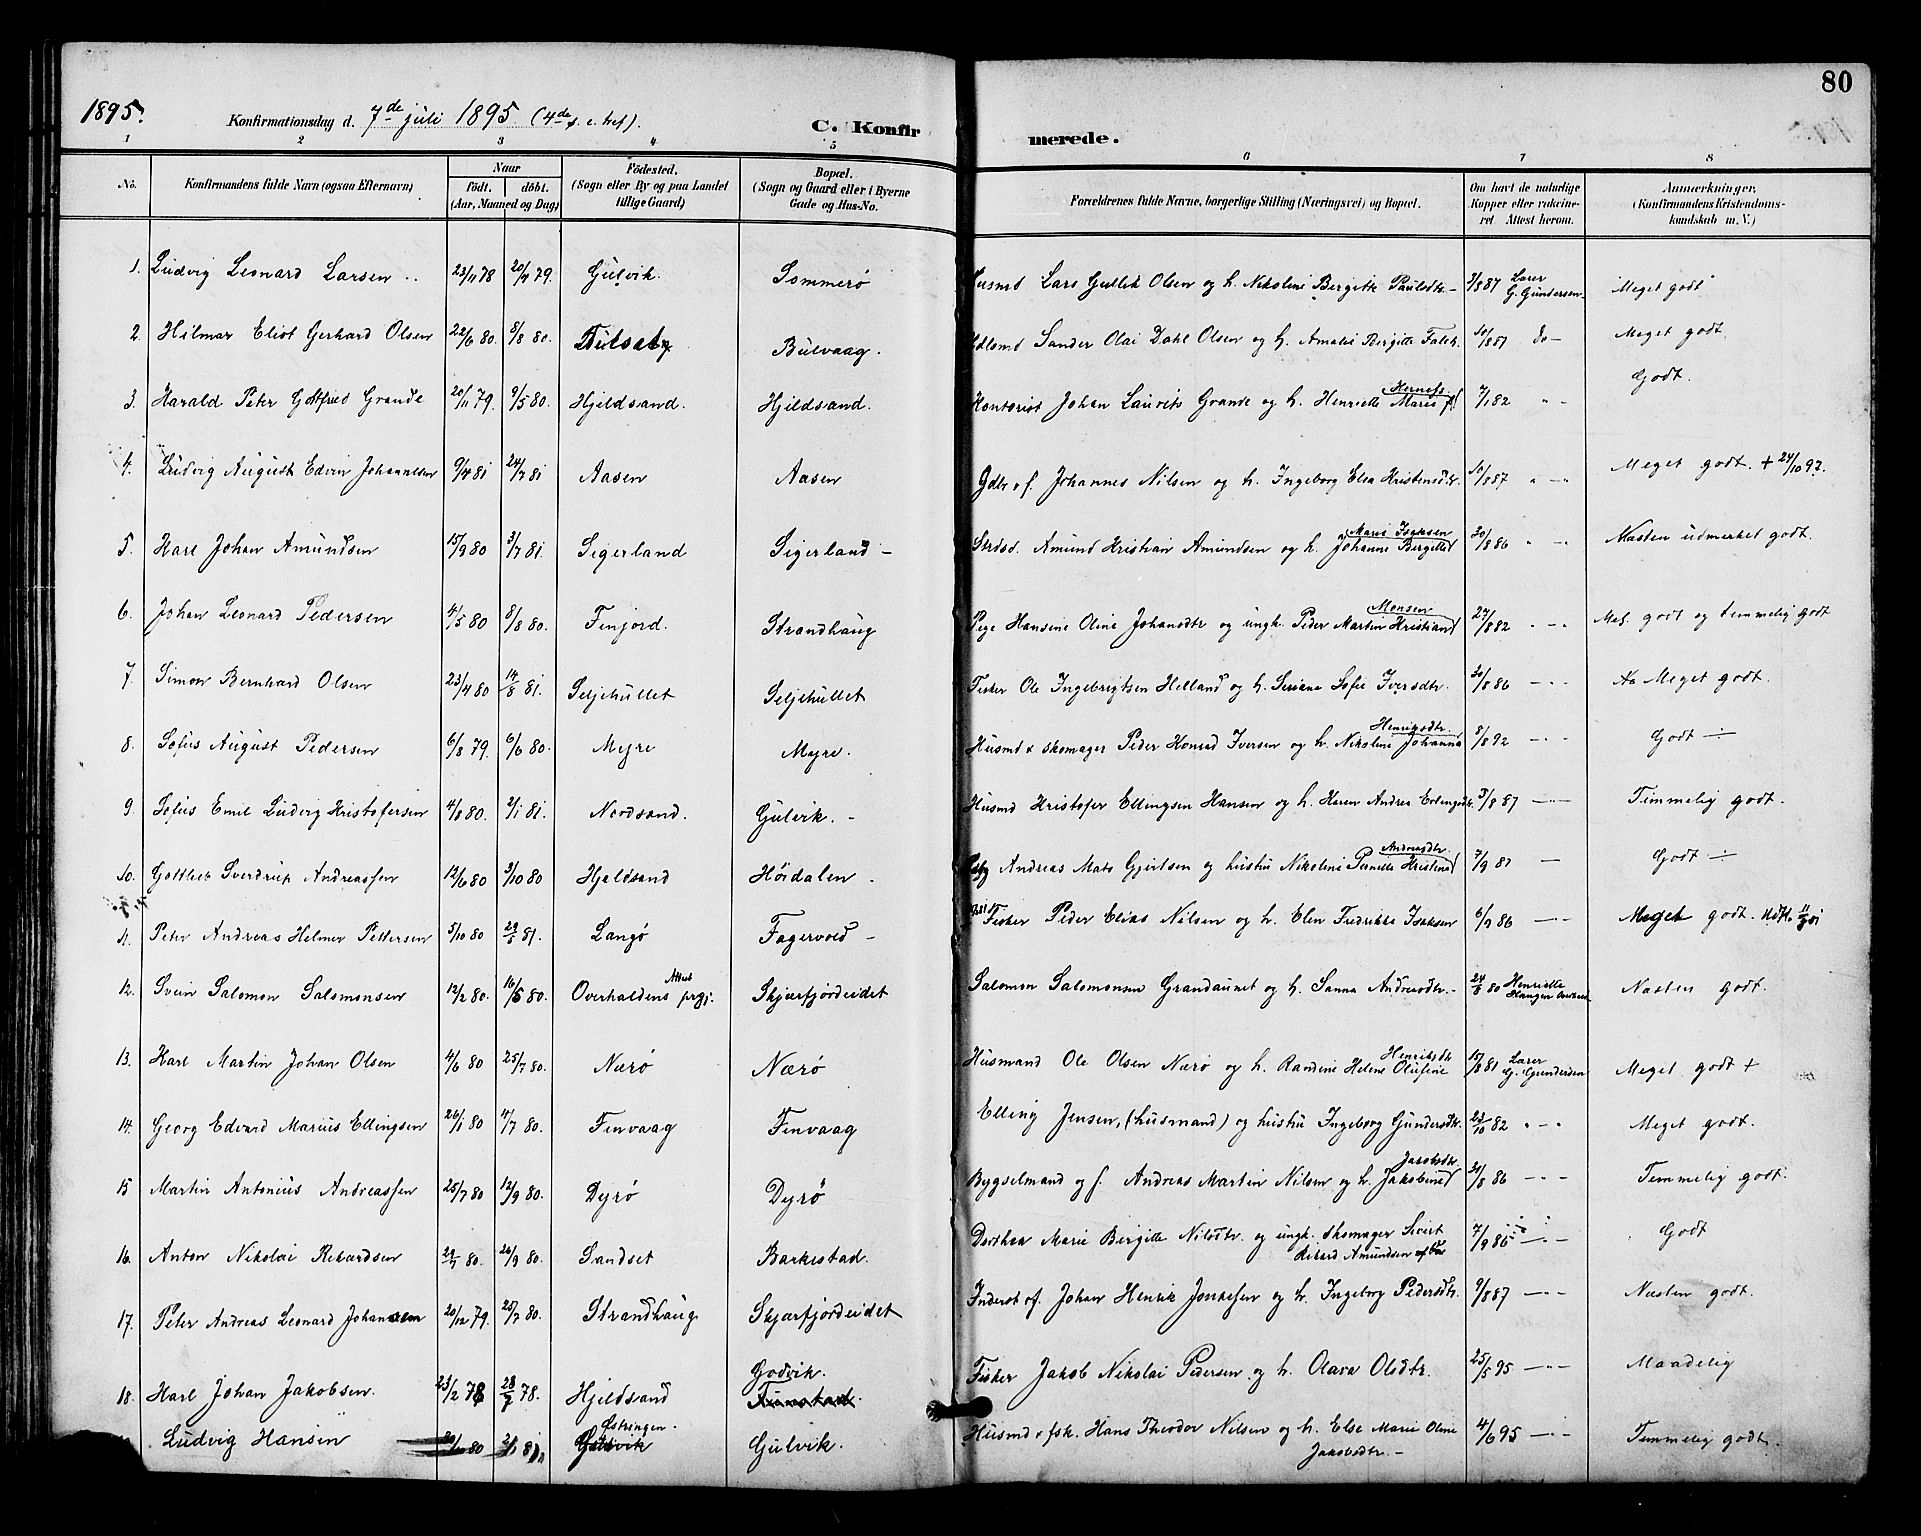 80
1895.
Konfirmationsdag d. 7de juli 1895 (4de s. e. tref).
C. Konfirmerede.
1 2 3 4 5 6 7 8
No. Konfirmandens fulde Navn (ogsaa Efternavn) Naar født. døbt. (Aar, Maaned og Dag) Födested. (Sogn eller By og paa Landet tillige Gaard) Bopæl. (Sogn og Gaard eller i Byerne Gade og Hus-No. Forældrenes fulde Navne, borgerlige Stilling (Næringsvei) og Bopæl. Om havt de naturlige Kopper eller vakcineret Attest herom. Anmærkninger, (Konfirmandens Kristendomskundskab m. V.)
1. Ludvig Leonard Larsen 23/11 78 20/4 79. Gulvik. Sommerø Husmd Lars Gullik Olsen og h. Nikoline Bergitte Paulsdtr. 3/8 87 Lærer G. Gundersen. Meget godt
2. Hilmar Eliot Gerhard Olsen 22/6 80. 8/8 80. Tulset Bulvaag. Sander Olai Dahl Olsen og h. Amalie Bergitte Falch. 10/8 87 do Meget godt.
3. Harald Peter Gotfred Grande 20/11 79. 9/5 80. Hjeldsand. Hjeldsand. Kontorist Johan Laurits Grande og h. Henriette Marie 7/1 82 " Godt.
4. Ludvig August Edvin Johannesen 9/4 81 24/7 81 Aasen Aasen Johannes Nilsen og h. Ingeborg Elea Kristensdtr. 10/8 87 " Meget godt. + 24/10 97.
5. Karl Johan Amundsen 15/9 80 3/7 81. Sigerland Sigerland Amund Kristian Amundsen og h. Johanne Bergitte Marie Isaksen 30/8 86 " Næsten udmerket godt.
6. Johan Leonard Pedersen 4/5 80 8/8 80. Finjord. Strandhaug Pige Hansine Oline Johansdtr og ungk. Peder Martin Kristian Monsen 27/8 82 " godt og temmelig godt
7. Simon Bernhard Olsen 23/4 80 14/8 81. Seljehullet Seljehullet Fisker Ole Ingebrigtsen Helland og h. Seriana Sofie Iversdtr. 30/8 86 " Meget godt.
8. Sofus August Pedersen 6/8 79. 6/6 80. Myre Myre. Husmd & skomager Peder Konrad Iversen og h. Nikoline Johanna Henriksdtr. 8/8 92 " Godt
9. Sofus Emil Ludvig Kristofersen 4/8 80. 2/1 81. Nordsand. Gulvik. Husmd Kristofer Ellingsen Hansen og h. Karen Andrea Erlingsdtr. 3/8 87 " Temmelig godt.
10. Gottlieb Sverdrup Andreassen 12/6 80 3/10 80 Hjeldsand Høidalen Andreas Mats Gjertsen og hustru Nikoline Pernille Kristine Andreasdtr. 7/9 81 Godt
11. Peter Andreas Helmer Pettersen 5/10 80 29/5 81. Langø Fagervold Fisker Peder Elias Nilsen og h. Elen Fredrikke Isaksen 6/9 86 " Meget godt.
12. Svein Salomon Salomonsen 12/2 80. 16/5 80. Overhaldens prgj. Attest Skjærfjordeidet Salomon Salomonsen Grandauret og h. Sanna Andreasdtr. 24/8 80 Henriette Næsten godt.
13. Karl Martin Johan Olsen 4/6 80 25/7 80. Nærø Nærø Husmand Ole Olsen Nærø og h. Randine Helene Olufine Henriksdtr 15/8 81 Lærer G. Gundersen Meget godt +
14. Georg Edvard Marius Ellingsen 26/1 80 4/7 80. Finvaag Finvaag Elling Jensen, (husmand) og hustru Ingeborg Gundersdtr. 23/10 82 " Meget godt.
15 Martin Antonius Andreassen 25/7 80 12/9 80. Dyrø Dyrø Bygselmand og f. Andreas Martin Nilsen og h. Jakobine Jakobsdtr. 30/8 86 " Temmelig godt.
16. Anton Nikolai Rikardsen 29/7 80. 26/9 80. Sandset Barkestad. Dorthea Marie Birgitte Nilsdtr. og ungk. skomager Sivert Rikard Amundsen 7/9 85 " Godt
17. Peter Andreas Leonard Johansen 20/12 79. 25/7 80. Strandhaug Skjærfjordeidet Inderst & f. Johan Henrik Jonassen og h. Ingeborg Pedersdtr. 9/8 87 " Næsten godt.
18. Karl Johan Jakobsen. 23/2 78 28/7 78. Hjeldsand Godvik. Fisker Jakob Nikolai Pedersen og h. Olava Olsdtr. 25/5 95 " Maadelig
Ludvig Hansen 20/1 80 Østringen. Gulvik. Husmd & fsk. Hans Theodor Nilsen og h. Else Marie Oline Jakobsdtr. 4/6 95 " Temmelig godt.